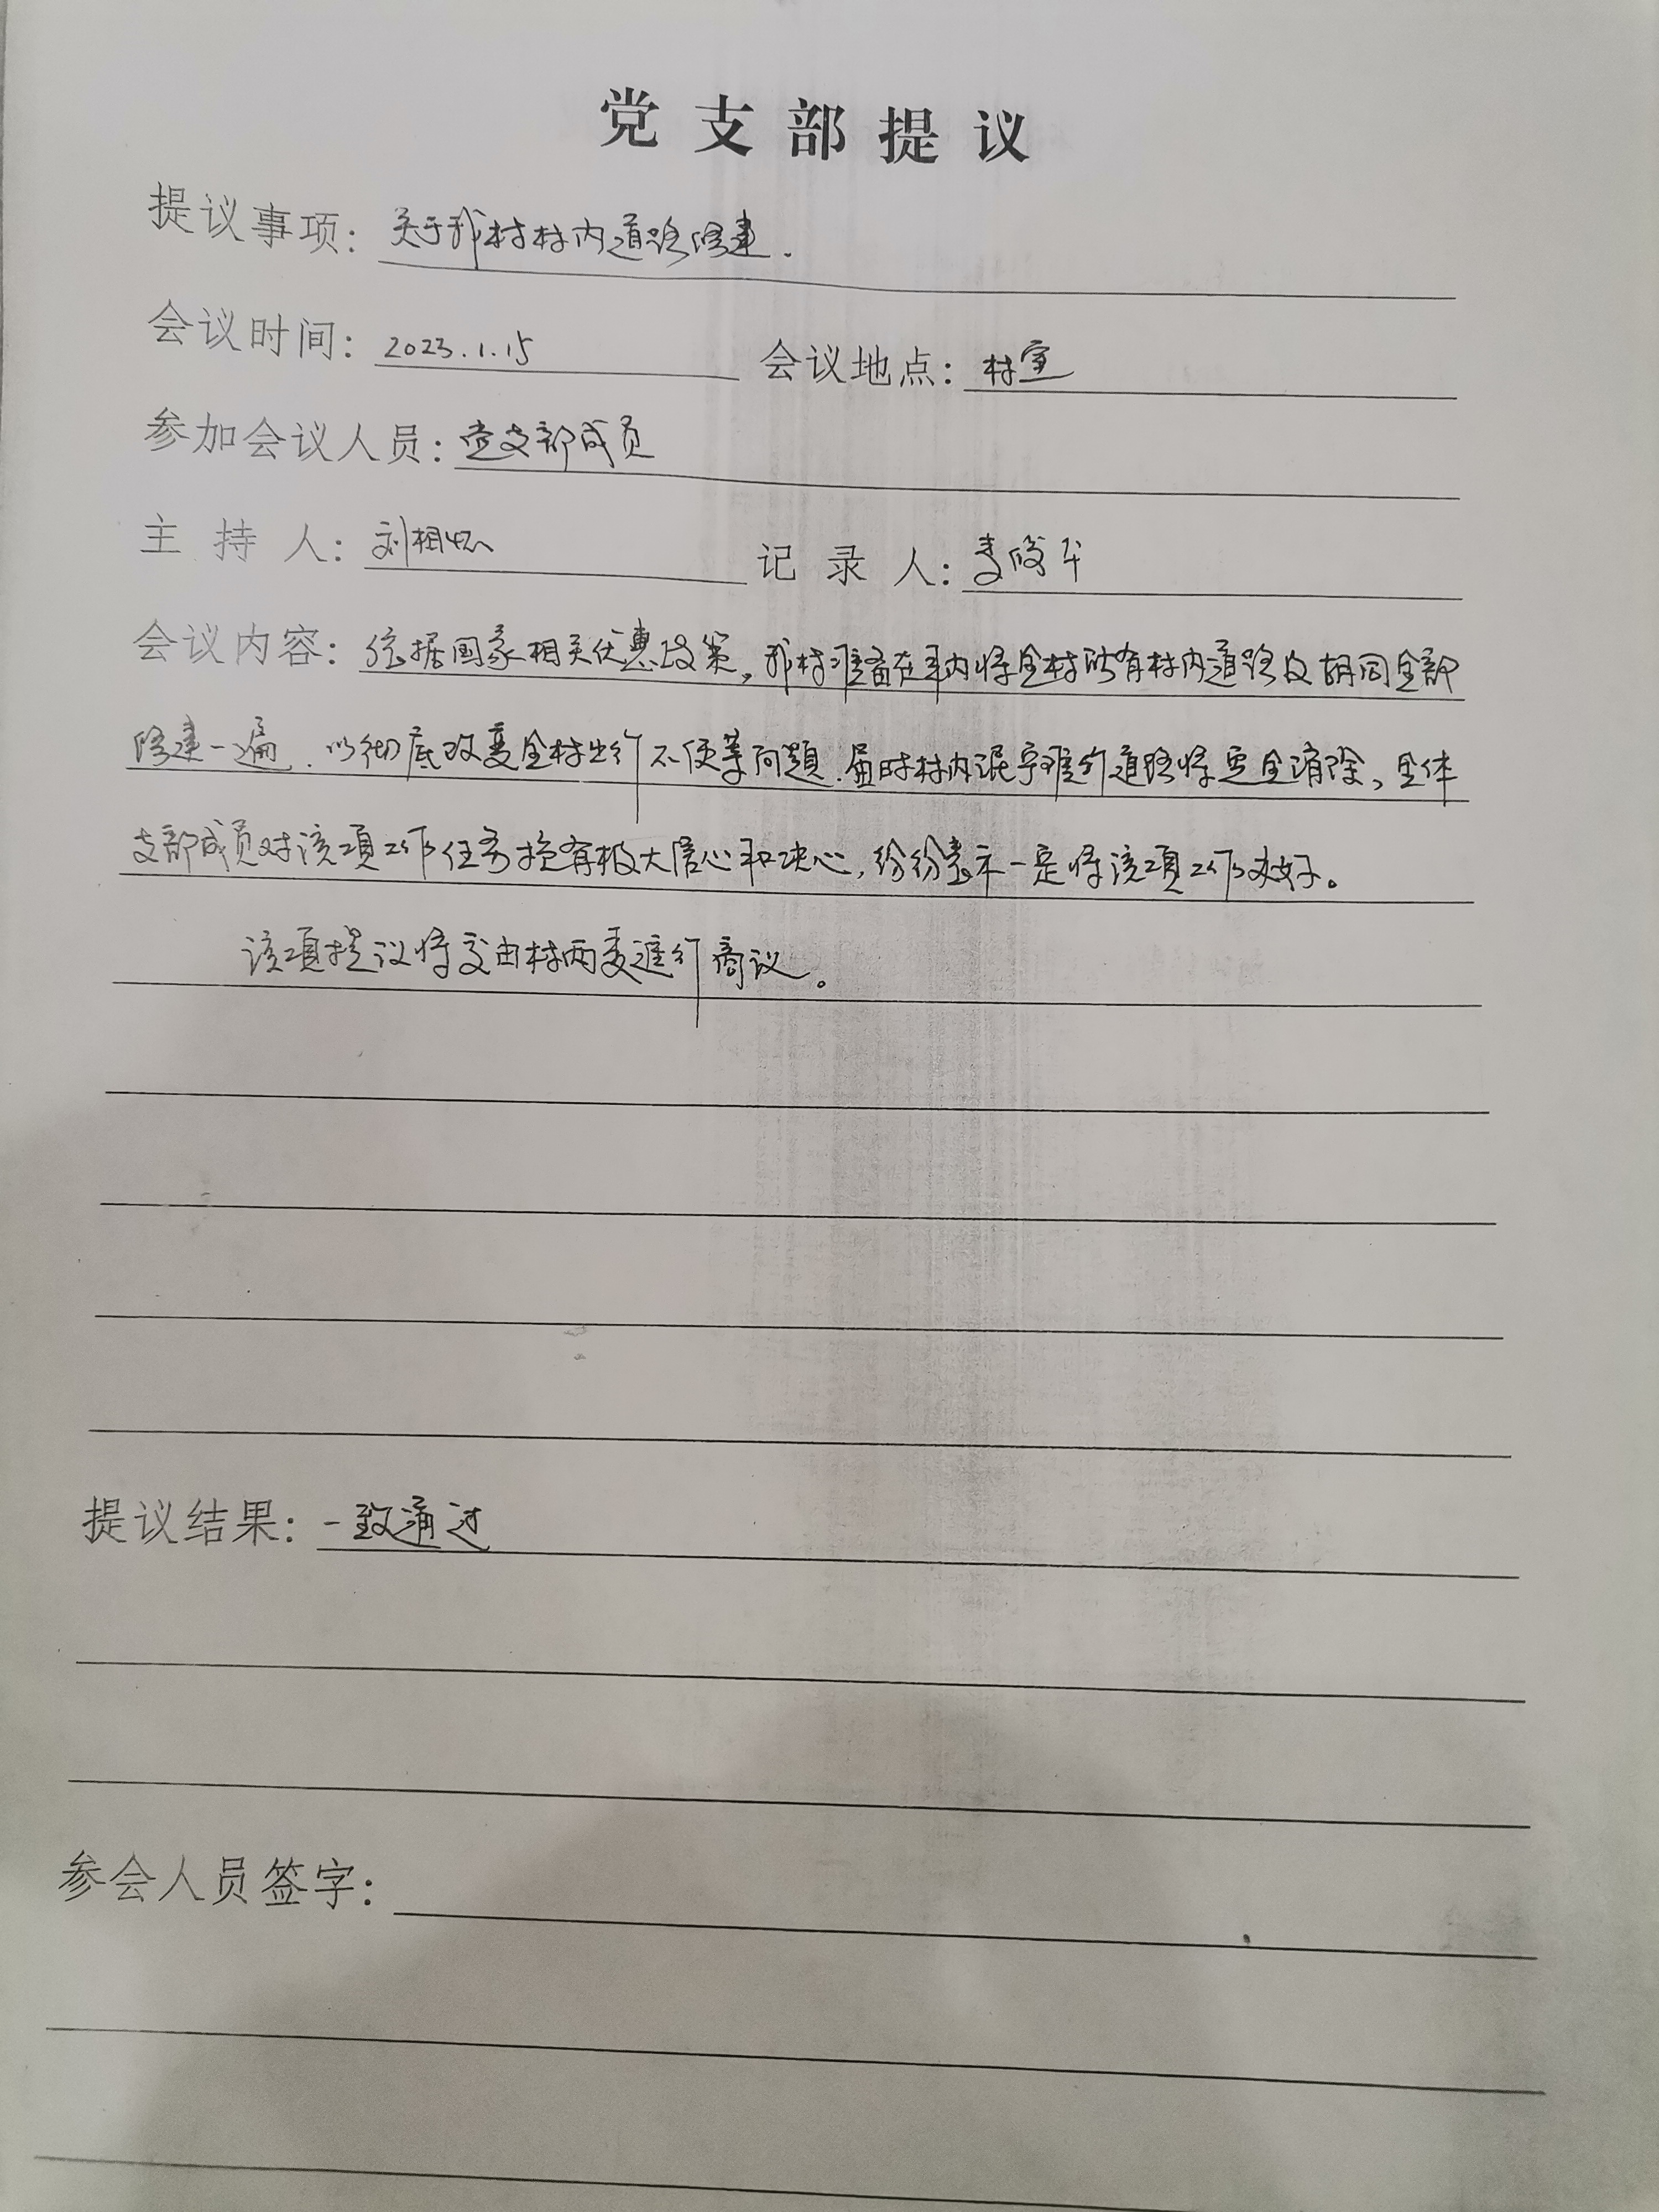 党支部提议
提议事项：关于我村村内道路修建.
会议时间：2023.1.15 会议地点：村室
参加会议人员：党支部成员
主持人：刘相 记录人：李俊平
会议内容：依据国家相关优惠政策，我村准备在年内将全村所有村内道路及胡同全部
修建一遍.以彻底改变全村出行不便等问题.届时村内泥宁难行道路将完全消除，全体
支部成员对该項工作任务抱有极大信心和决心，纷纷表示一定将该項工作办好。
该項提议将交由村两委進行商议。
提议结果：一致通过
参会人员签字：